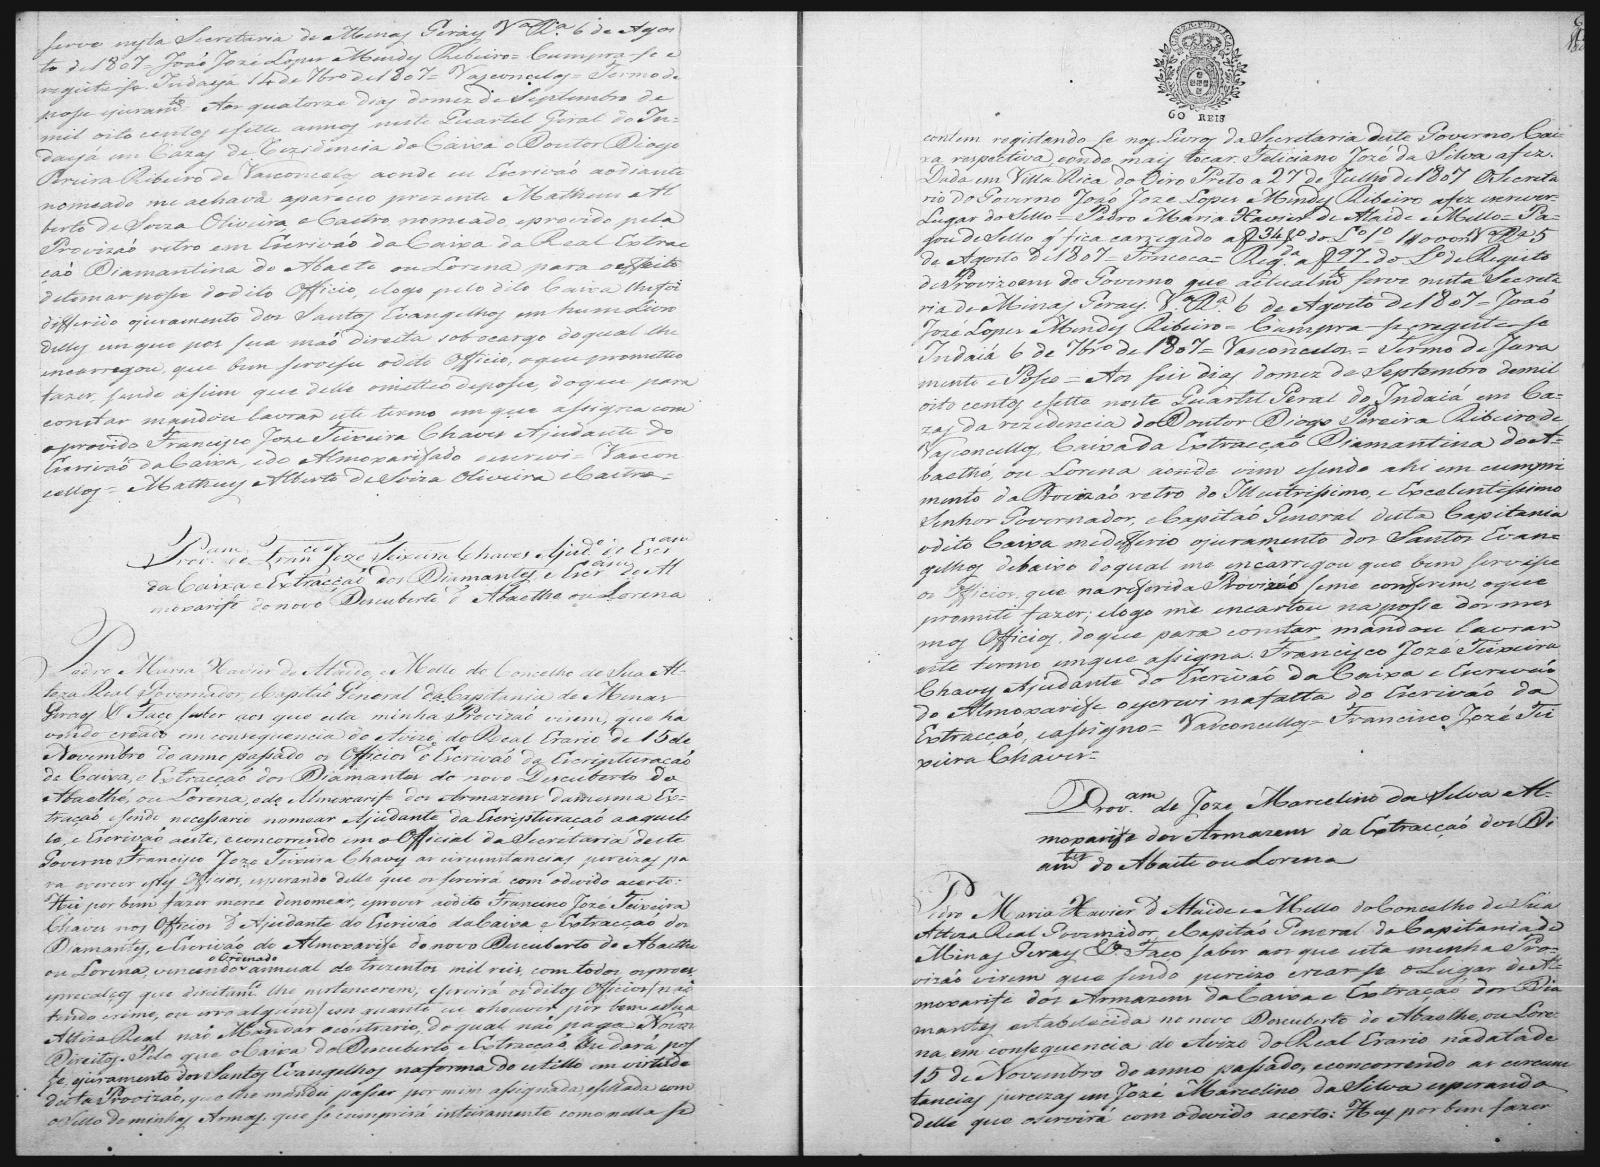 serve nesta Secretaria de Minas Geraes Vª Rª 6 de Agos
to de 1807= João Jozé Lopes Mendes Ribeiro= Cumpra-se e
registe-se. Indayá 14 de 7bro de 1807= Vasconcelos= Termo de
posse e juramto Aos quatorze dias do mez de Septembro de
mil oito centos e sette annos neste Quartel Geral do In-
dayá em Cazas de Rezidencia do Caixa o Doutor Diogo
Pereira Ribeiro de Vasconcelos aonde eu Escrivaõ ao diante
nomeado me achava apareceo prezente Matheus Al
berto de Souza Oliveira, e Castro nomeado, e provido pela
Provizaõ retro em Escrivaõ da Caixa da Real Extrac
çaõ Diamantina do Abaete ou Lorena para o effeito
de tomar posse do dito Officio, e logo pelo dito Caixa lhe foi
differido o juramento dos Santos Evangelhos em hum Livro
delles em que pos sua maõ direita sob o cargo do qual lhe
encarregou, que bem servisse o dito Officio, o que prometteo
fazer, sendo assim que delle o metteo de posse, do que para
constar mandou lavrar este termo em que assigna com
o provido Francisco Joze Teixeira Chaves Ajudante do
Escrivaõ da Caixa, e do Almoxarifado o escrevi= Vascon
cellos= Matheus Alberto de Soiza Oliveira e Castro=
Provam de Francco Joze Teixeira Chaves Ajude do Escram
da Caixa e Extracçaõ dos Diamantes, e Escram do Al
moxarife do novo Descuberto d'Abaethe ou Lorena
Pedro Maria Xavier de Ataide, e Mello do Concelho de Sua Al-
teza Real Governador, e Capitaõ General da Capitania de Minas
Geraes &ª Faço saber aos que esta minha Provizaõ virem, que ha
vendo creado em consequencia do Avizo do Real Erario de 15 de
Novembro do anno passado os Officios de Escrivaõ da Escripturaçaõ
da Caixa, e Extracçaõ dos Diamantes do novo Descuberto do
Abaethé, ou Lorena, e de Almoxarife dos Armazens da mesma Ex-
tração, e sendo necessario nomear Ajudante da Escripturaçaõ a aquel
le, e Escrivaõ a este, e concorrendo em o Official da Secretaria deste
Governo Francisco Joze Teixeira Chaves as circunstancias percizas pa
ra exercer estes Officios, esperando delle que os servirá com o devido acerto:
Hei por bem fazer merce de nomear, e prover o dito Francisco Joze Teixeira
Chaves nos Officios d'Ajudante do Escrivaõ da Caixa e Extracçaõ dos
Diamantes, e Escrivaõ do Almoxarife do novo Descuberto do Abaethe
ou Lorena, vencendo o Ordenado annual de trezentos mil reis, com todos os proes,
e precalços que direitamte lhe pertencerem, e servirá os ditos Officios (naõ
tendo crime, ou erro algum) em quanto eu o houver por bem, e Sua
Alteza Real naõ Mandar o contrario, do qual naõ paga Novos
Direitos. Pelo que o Caixa do Descuberto e Extracçaõ, lhe dará pos
se, e juramento dos Santos Evangelhos na forma do estillo em virtude
desta Provizaõ, que lhe mandei passar por mim assignada, e sellada com
o Sello de minhas Armas, que se cumprirá inteiramente como nella se
60 REIS
contem registando-se nos Livros da Secretaria deste Governo, Cai-
xa respectiva, e onde mais tocar. Feliciano Jozé da Silva a fez.
Dada em Villa Rica do Oiro Preto a 27 de Julho de 1807 O Secreta
rio do Governo Joaõ Joze Lopes Mendes Ribeiro a fez escrever-
Lugar do Sello= Pedro Maria Xavier de Ataide e Mello= Pa-
de Agosto de 1807= Fonceca= Regda a f 97 do Lº de Registo
de Provizoens do Governo que actualmte serve nesta Secreta
ria de Minas Geraes. Vª Rª 6 de Agosto de 1807= Joaõ
Joze Lopes Mendes Ribeiro= Cumpra-se, e registe-se
Indaiá 6 de 7bro de 1807= Vasconcelos= Termo de Jura
mento e Posse= Aos seis dias do mez de Septembro de mil
oito centos e sette neste Quartel Geral do Indaiá em Ca-
zas da rezidencia do Doutor Diogo Pereira Ribeiro de
Vasconcellos, Caixa da Extracçaõ Diamantina do A-
baethé, ou Lorena aonde vim e sendo ahi em cumpri
mento da Provizaõ retro do Illustrissimo, e Excelentissimo
Senhor Governador, e Capitaõ General desta Capitania
o dito Caixa me differio o juramento dos Santos Evan-
gelhos debaixo do qual me encarregou que bem servisse
os Officios, que na referida Provizaõ se me conferem, o que
prometi fazer; e logo me encartou na posse dos mes
mos Officios, do que para constar mandou lavrar
este termo em que assigna. Francisco Jozé Teixeira
Chaves Ajudante do Escrivaõ da Caixa e Escrivaõ
do Almoxarife o escrevi na falta do Escrivaõ da
Extracçaõ, e assigno= Vasconcellos= Francisco Jozé Tei
xeira Chaves=
Provam de Joze Marcelino da Silva Al-
moxarife dos Armazens da Extracçaõ dos Di
amtes do Abaite ou Lorena
Pedro Maria Xavier d'Ataide e Mello do Concelho de Sua
Alteza Real Governador, e Capitaõ General da Capitania de
Minas Geraes &ª Faço saber aos que esta minha Pro-
vizaõ virem que sendo percizo crear-se o Lugar de Al-
moxarife dos Armazens da Caixa e Extraçaõ dos Dia
mantes estabelecida no novo Descuberto do Abaethe, ou Lore-
na em consequencia do Avizo do Real Erario na data de
15 de Novembro do anno passado, e concorrendo as circuns
tancias percizas em Jozé Marcelino da Silva esperando
delle que o servirá com o devido acerto: Hey por bem fazer